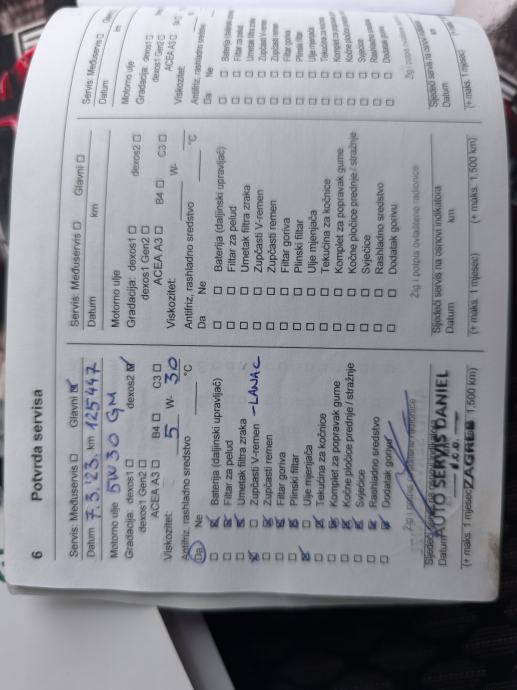 6
Potvrda servisa
Servis: Međuservis □ Glavni ☒
Datum 7.3.'23. km 125447
Motorno ulje 5W30 GM
Gradacija: dexos1 □ dexos2 ☒
dexos1 Gen2 □
ACEA A3 □ B4 □ C3 □
Viskozitet: 5 W- 30
Antifriz, rashladno sredstvo °C
Da Ne
□ ☒ Baterija (daljinski upravljač)
□ ☒ Filtar za pelud
□ ☒ Umetak filtra zraka
☒ □ Zupčasti V-remen -LANAC
□ ☒ Zupčasti remen
□ ☒ Filtar goriva
□ ☒ Plinski filtar
☒ □ Ulje mjenjača
□ ☒ Tekućina za kočnice
□ ☒ Komplet za popravak gume
□ ☒ Kočne pločice prednje / stražnje
□ ☒ Svjećice
□ ☒ Rashladno sredstvo
□ ☒ Dodatak gorivu
Žig i potpis ovlaštene radionice
AUTO SERVIS DANIEL
d.o.o.
ZAGREB
Sljedeći servis
Datum
(+ maks. 1 mjesec) 1,500 km)
Servis: Međuservis □ Glavni □
Datum km
Motorno ulje
Gradacija: dexos1 □ dexos2 □
dexos1 Gen2 □
ACEA A3 □ B4 □ C3 □
Viskozitet: W-
Antifriz, rashladno sredstvo °C
Da Ne
□ □ Baterija (daljinski upravljač)
□ □ Filtar za pelud
□ □ Umetak filtra zraka
□ □ Zupčasti V-remen
□ □ Zupčasti remen
□ □ Filtar goriva
□ □ Plinski filtar
□ □ Ulje mjenjača
□ □ Tekućina za kočnice
□ □ Komplet za popravak gume
□ □ Kočne pločice prednje / stražnje
□ □ Svjećice
□ □ Rashladno sredstvo
□ □ Dodatak gorivu
Žig i potpis ovlaštene radionice
Sljedeći servis na osnovi indikatora
Datum km
(+ maks. 1 mjesec) (+ maks. 1,500 km)
Servis: Međuservis □
Datum
Motorno ulje
Gradacija: dexos1 □
dexos1 Gen2 □
ACEA A3 □
Viskozitet:
Antifriz, rashladno sredstvo
Da Ne
□ □ Baterija
□ □ Filtar za pelud
□ □ Umetak filtra zraka
□ □ Zupčasti V-remen
□ □ Zupčasti remen
□ □ Filtar goriva
□ □ Plinski filtar
□ □ Ulje mjenjača
□ □ Tekućina za kočnice
□ □ Komplet za popravak
□ □ Kočne pločice
□ □ Svjećice
□ □ Rashladno sredstvo
□ □ Dodatak gorivu
Žig i potpis
Sljedeći servis na osnovi
Datum
(+ maks. 1 mjesec)